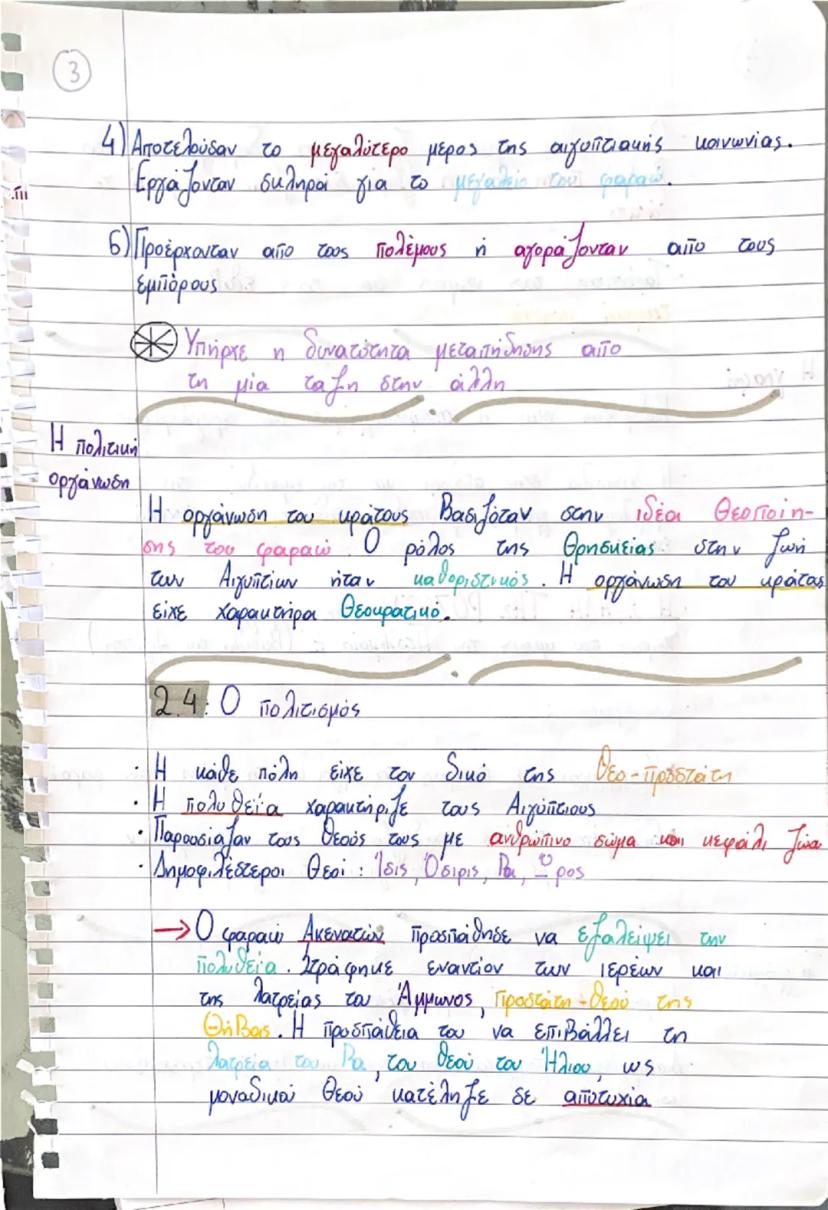 3
4) Αποτελούσαν το μεγαλύτερο μέρος της αιγυπτιακής κοινωνίας.
Εργάζονταν σκληρά για το μεγαλείο του φαραώ.
5) Προέρχονταν από τους πολέμους ή αγοράζονταν από τους
εμπόρους
Υπήρχε η δυνατότητα μεταπήδησης από
τη μία ταξη στην άλλη
Η πολιτική
οργάνωση
Η οργάνωση του κράτους Βασιζόταν στην ιδέα Θεοποίη-
σης του φαραώ. Ο ρόλος της Θρησκείας στην ζωή
των Αιγυπτίων ήταν καθοριστικός. Η οργάνωση του κράτους
είχε χαρακτήρα Θεοκρατικό.
2.4: Ο πολιτισμός
· Η κάθε πόλη είχε τον δικό της Θεο-προστάτη
· Η πολυθεΐα χαρακτήριζε τους Αιγύπτιους
· Παρουσίαζαν τους Θεούς τους με ανθρώπινο σώμα και κεφάλι ζώα
· Δημοφιλέστεροι Θεοί: Ίσις, Όσιρις, Ρα, Ώρος
→ Ο φαραώ Ακενατών προσπάθησε να εξαλείψει την
πολυθεΐα. Στράφηκε εναντίον των ιερέων και
της λατρείας του Άμμωνος, προστάτη-θεού της
Θήβας. Η προσπάθεια του να επιβάλλει τη
λατρεία του Ρα, του θεού του Ήλιου, ως
μοναδικού Θεού κατέληξε σε αποτυχία